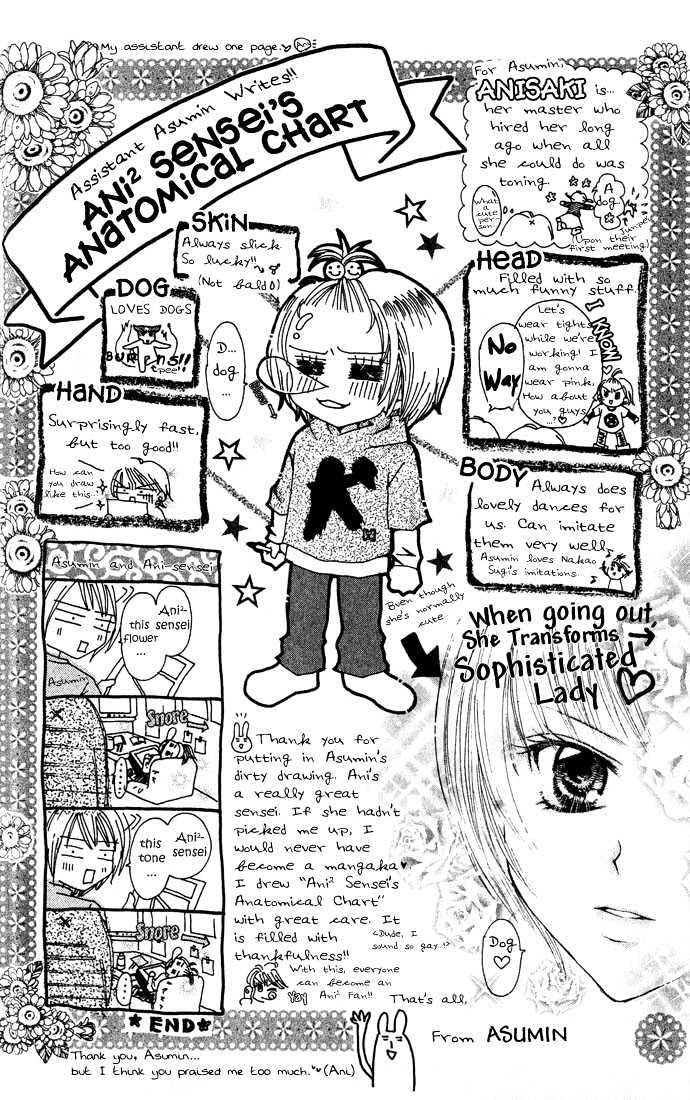 My assistant drew one page. Ani
Assistant Asumin Writes!!
ANi² SENSEi'S
ANATOMiCAL CHART
For Asumin,
ANISAKI is...
her master who
hired her long
ago when all
she could do was
toning.
What
a
cute
per-
son
A
dog
Jumper
(Upon their
first meeting)
SKiN
Always slick.
So lucky!!
(Not bald)
DOG
LOVES DOGS
D...
dog
...
HAND
Surprisingly fast,
but too good!!
How can
you draw
like this...
HEAD
Filled with so
much funny stuff.
No
Way
Let's
wear tights
while we're
working! I
am gonna
wear pink.
How about
you guys
...?♡
I KNOW
BODY
Always does
lovely dances for
us. Can imitate
them very well.
Asumin loves Nakao
Sugi's imitations.
K
Even though
she's normally
cute
When going out,
She Transforms →
Sophisticated
Lady ♡
Dog
♡
Asumin and Ani-sensei
Ani²
this sensei
flower
...
Asumin
Snore
Ani²
this sensei
tone ...
Snore
*END*
Thank you for
putting in Asumin's
dirty drawing. Ani's
a really great
sensei. If she hadn't
picked me up, I
would never have
become a mangaka♥.
I drew "Ani² Sensei's
Anatomical Chart"
with great care. It
is filled with
thankfulness!!
<Dude, I
sound so gay.!>
With this, everyone
can become an
Yay Ani² Fan!!
That's all,
From ASUMIN
Thank you, Asumin...
but I think you praised me too much.♥♥(Ani)